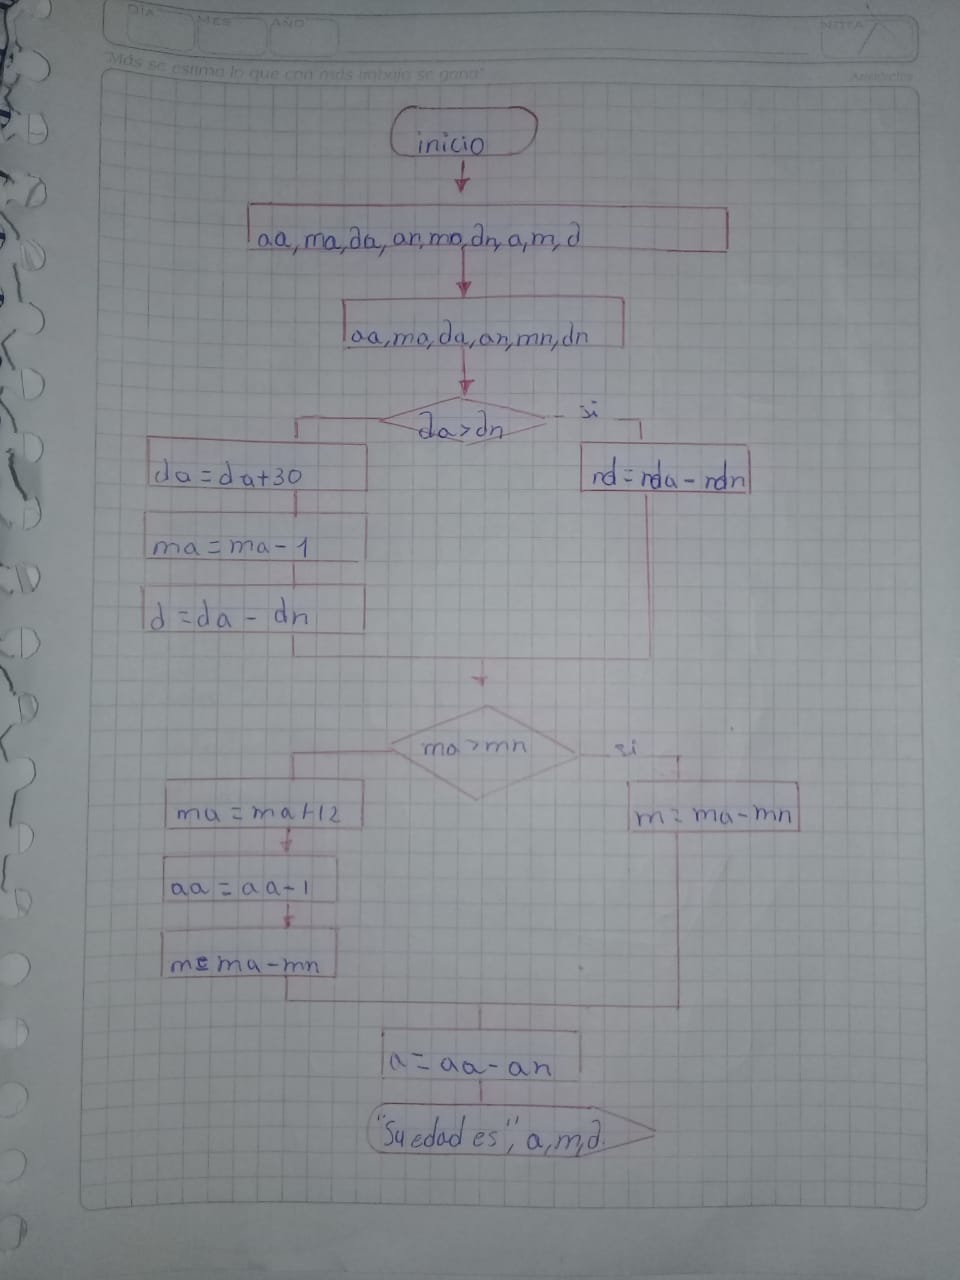 DIA MES AÑO NOTA
"Más se estima lo que con más trabajo se gana" Aristóteles
inicio
aa, ma, da, an, mn, dn, a, m, d
aa, ma, da, an, mn, dn
da > dn si
da = da + 30 nd = nda - ndn
ma = ma - 1
d = da - dn
ma > mn si
ma = ma + 12 m = ma - mn
aa = aa - 1
m = ma - mn
a = aa - an
"Su edad es", a, m, d.